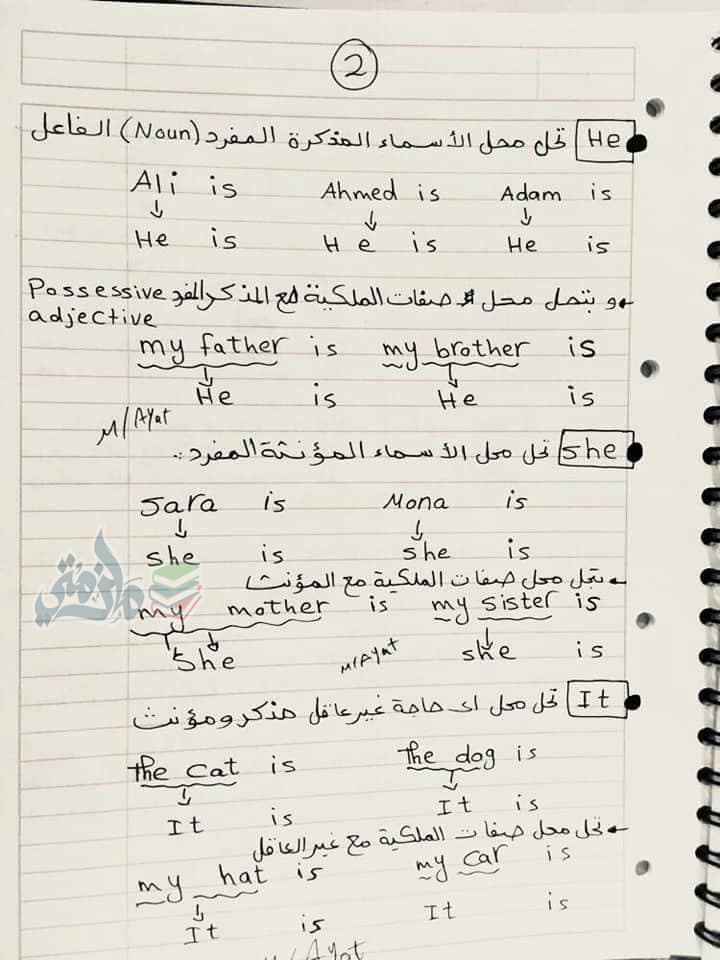 2
He تحل محل الأسماء المذكرة المفرد (Noun) الفاعل
Ali is Ahmed is Adam is
He is He is He is
وبتحل محل صفات الملكية مع المذكر المفرد Possessive
adjective
my father is my brother is
He is He is
M/Ayat
She تحل محل الأسماء المؤنثة المفرد
Sara is Mona is
she is she is
بتحل محل صفات الملكية مع المؤنث
my mother is my sister is
She she is
M/Ayat
It تحل محل اى حاجة غير عاقل مذكر ومؤنث
the cat is the dog is
It is It is
تحل محل صفات الملكية مع غير العاقل
my hat is my car is
It is It is
M/Ayat